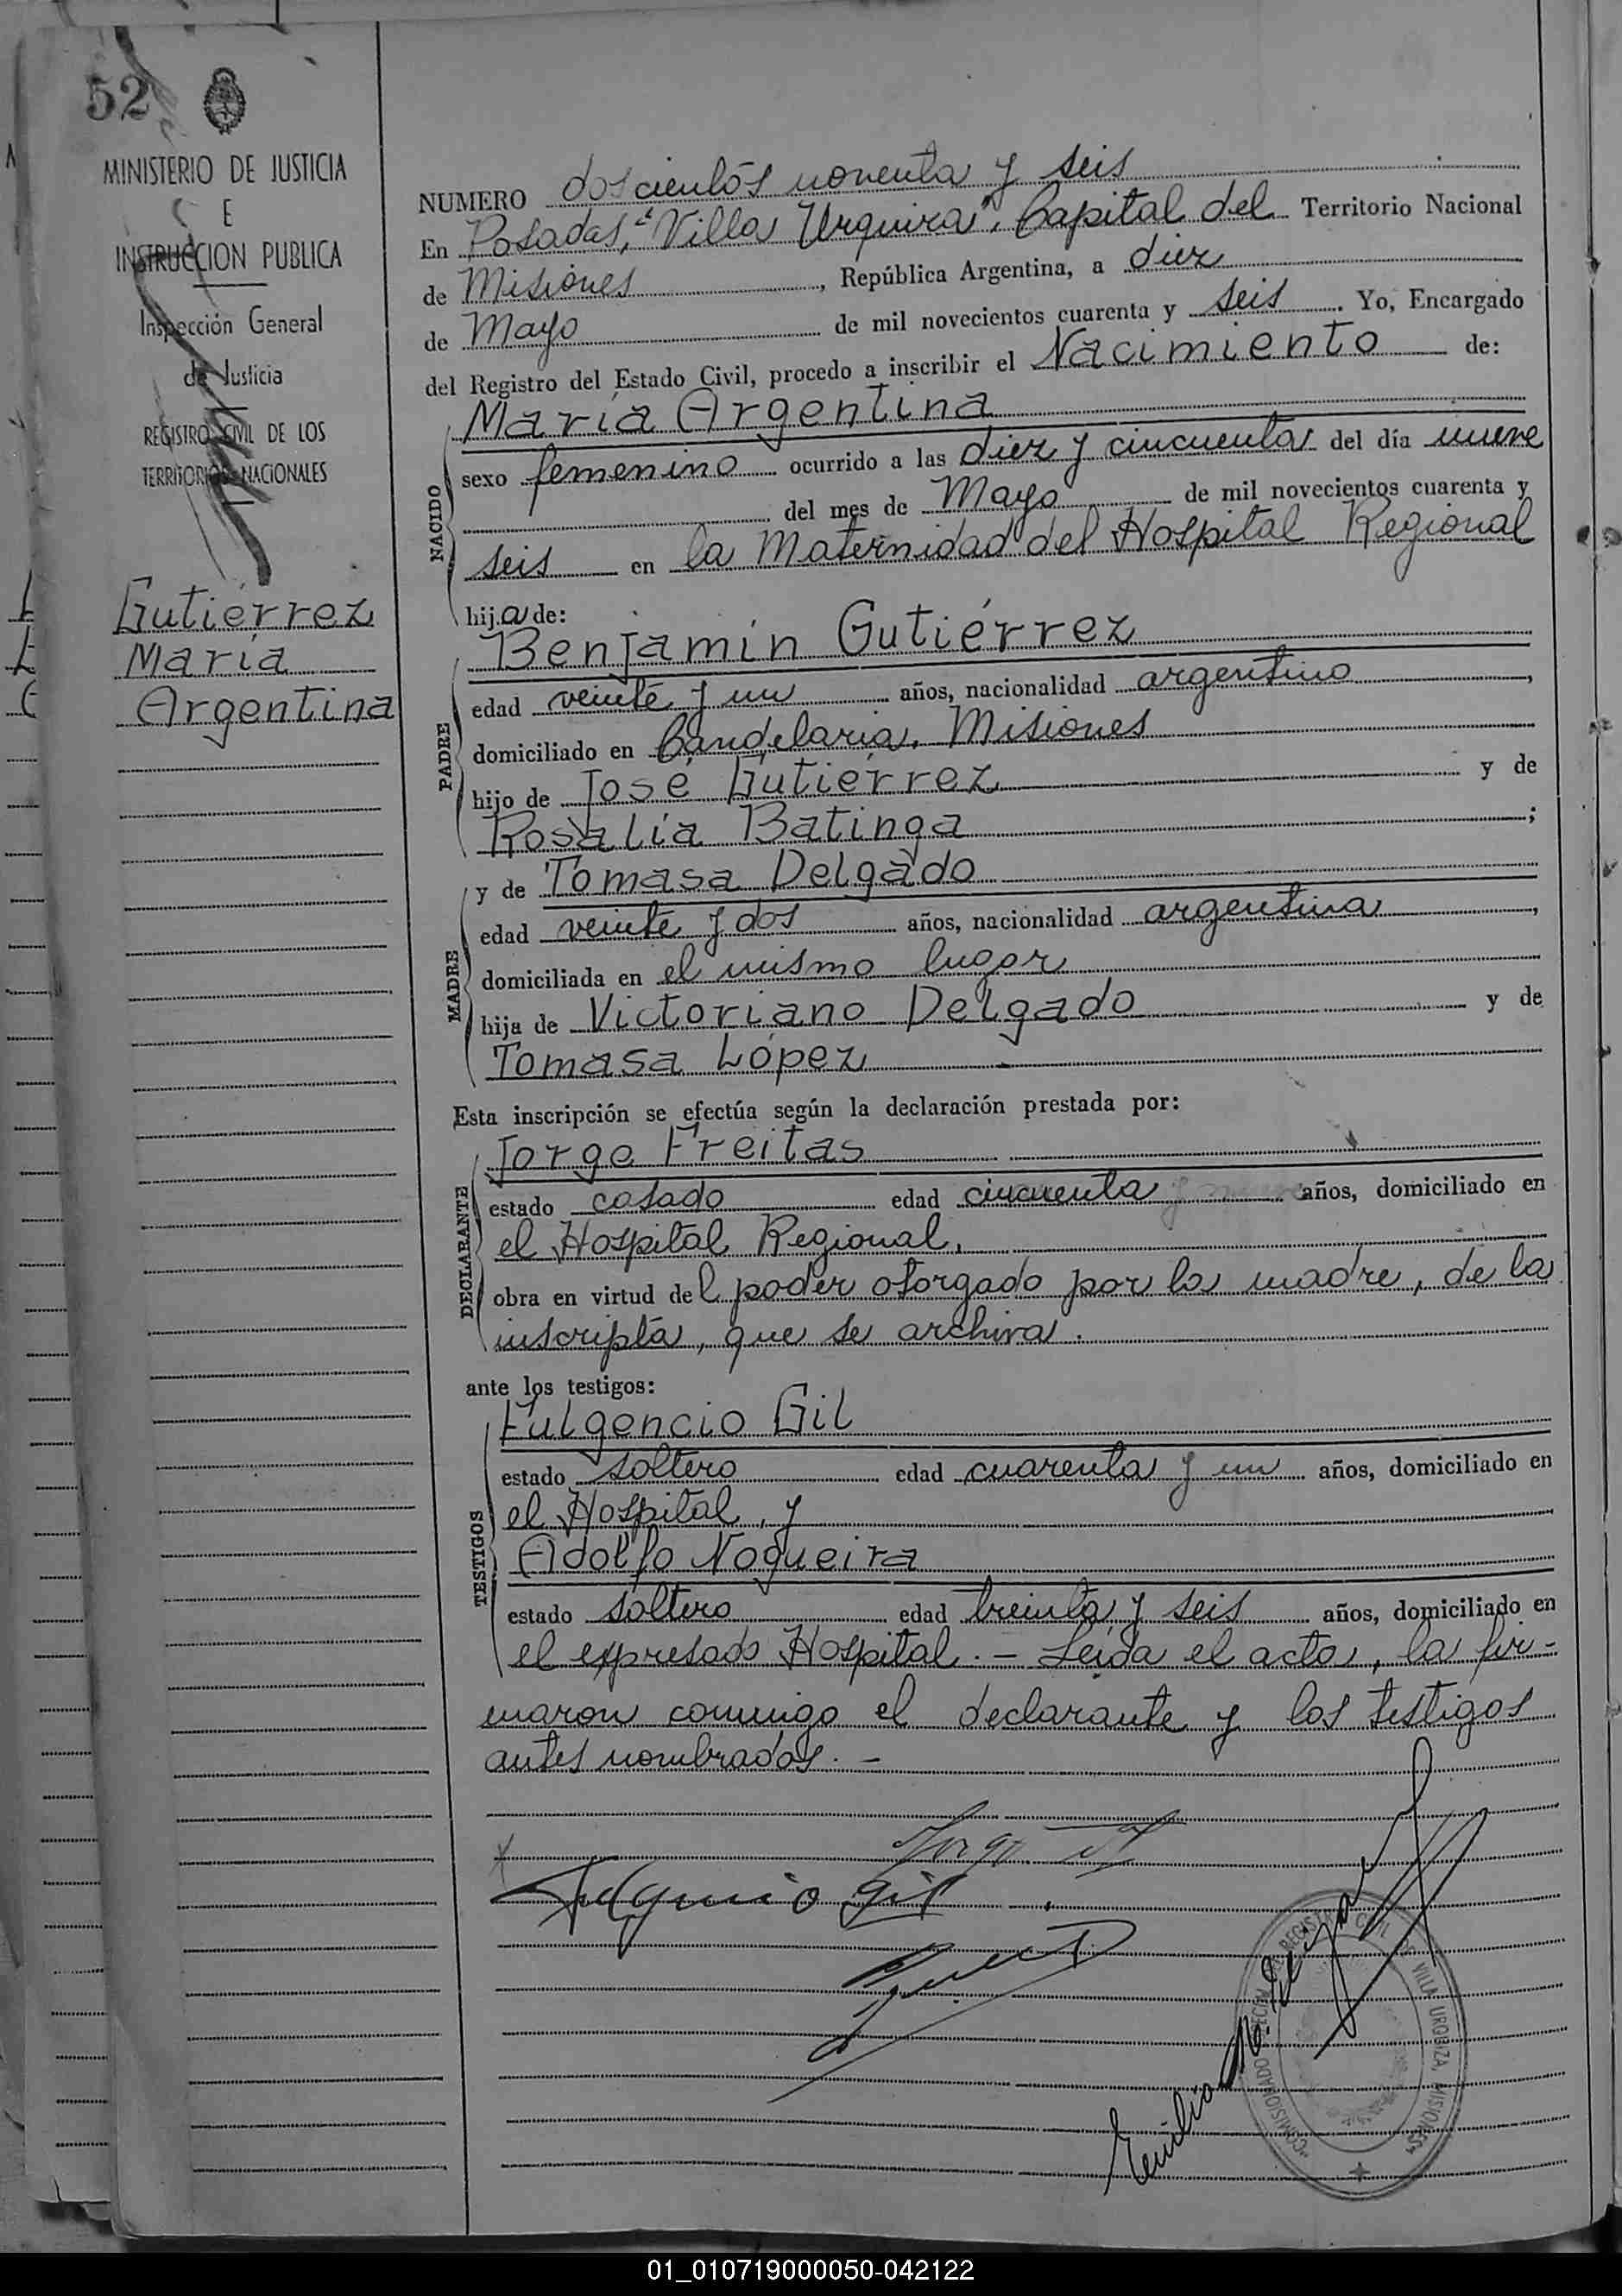 52
MINISTERIO DE JUSTICIA
E
INSTRUCCION PUBLICA
Inspección General
de Justicia
REGISTRO CIVIL DE LOS
TERRITORIOS NACIONALES
Gutiérrez
María
Argentina
NUMERO doscientos noventa y seis
En Posadas, "Villa Urquiza", Capital del Territorio Nacional
de Misiones, República Argentina, a diez
de Mayo de mil novecientos cuarenta y seis. Yo, Encargado
del Registro del Estado Civil, procedo a inscribir el Nacimiento de:
María Argentina
sexo femenino ocurrido a las diez y cincuenta del día nueve
del mes de Mayo de mil novecientos cuarenta y
seis en la Maternidad del Hospital Regional
hija de:
NACIDO
Benjamín Gutiérrez
edad veinte y un años, nacionalidad argentino,
domiciliado en Candelaria, Misiones
hijo de José Gutiérrez y de
Rosalía Batinga;
PADRE
y de Tomasa Delgado
edad veinte y dos años, nacionalidad argentina,
domiciliada en el mismo lugar
hija de Victoriano Delgado y de
Tomasa López
MADRE
Esta inscripción se efectúa según la declaración prestada por:
Jorge Freitas
estado casado edad cincuenta años, domiciliado en
el Hospital Regional,
obra en virtud del poder otorgado por la madre, de la
inscripta, que se archiva.
DECLARANTE
ante los testigos:
Fulgencio Gil
estado soltero edad cuarenta y un años, domiciliado en
el Hospital, y
Adolfo Nogueira
estado soltero edad treinta y seis años, domiciliado en
el expresado Hospital.- Leída el acta, la fir-
TESTIGOS
maron conmigo el declarante y los testigos
antes nombrados.-
Fulgencio Gil
Emilio
REGISTRO CIVIL DE VILLA URQUIZA, MISIONES
COMISIONADO
01_010719000050-042122